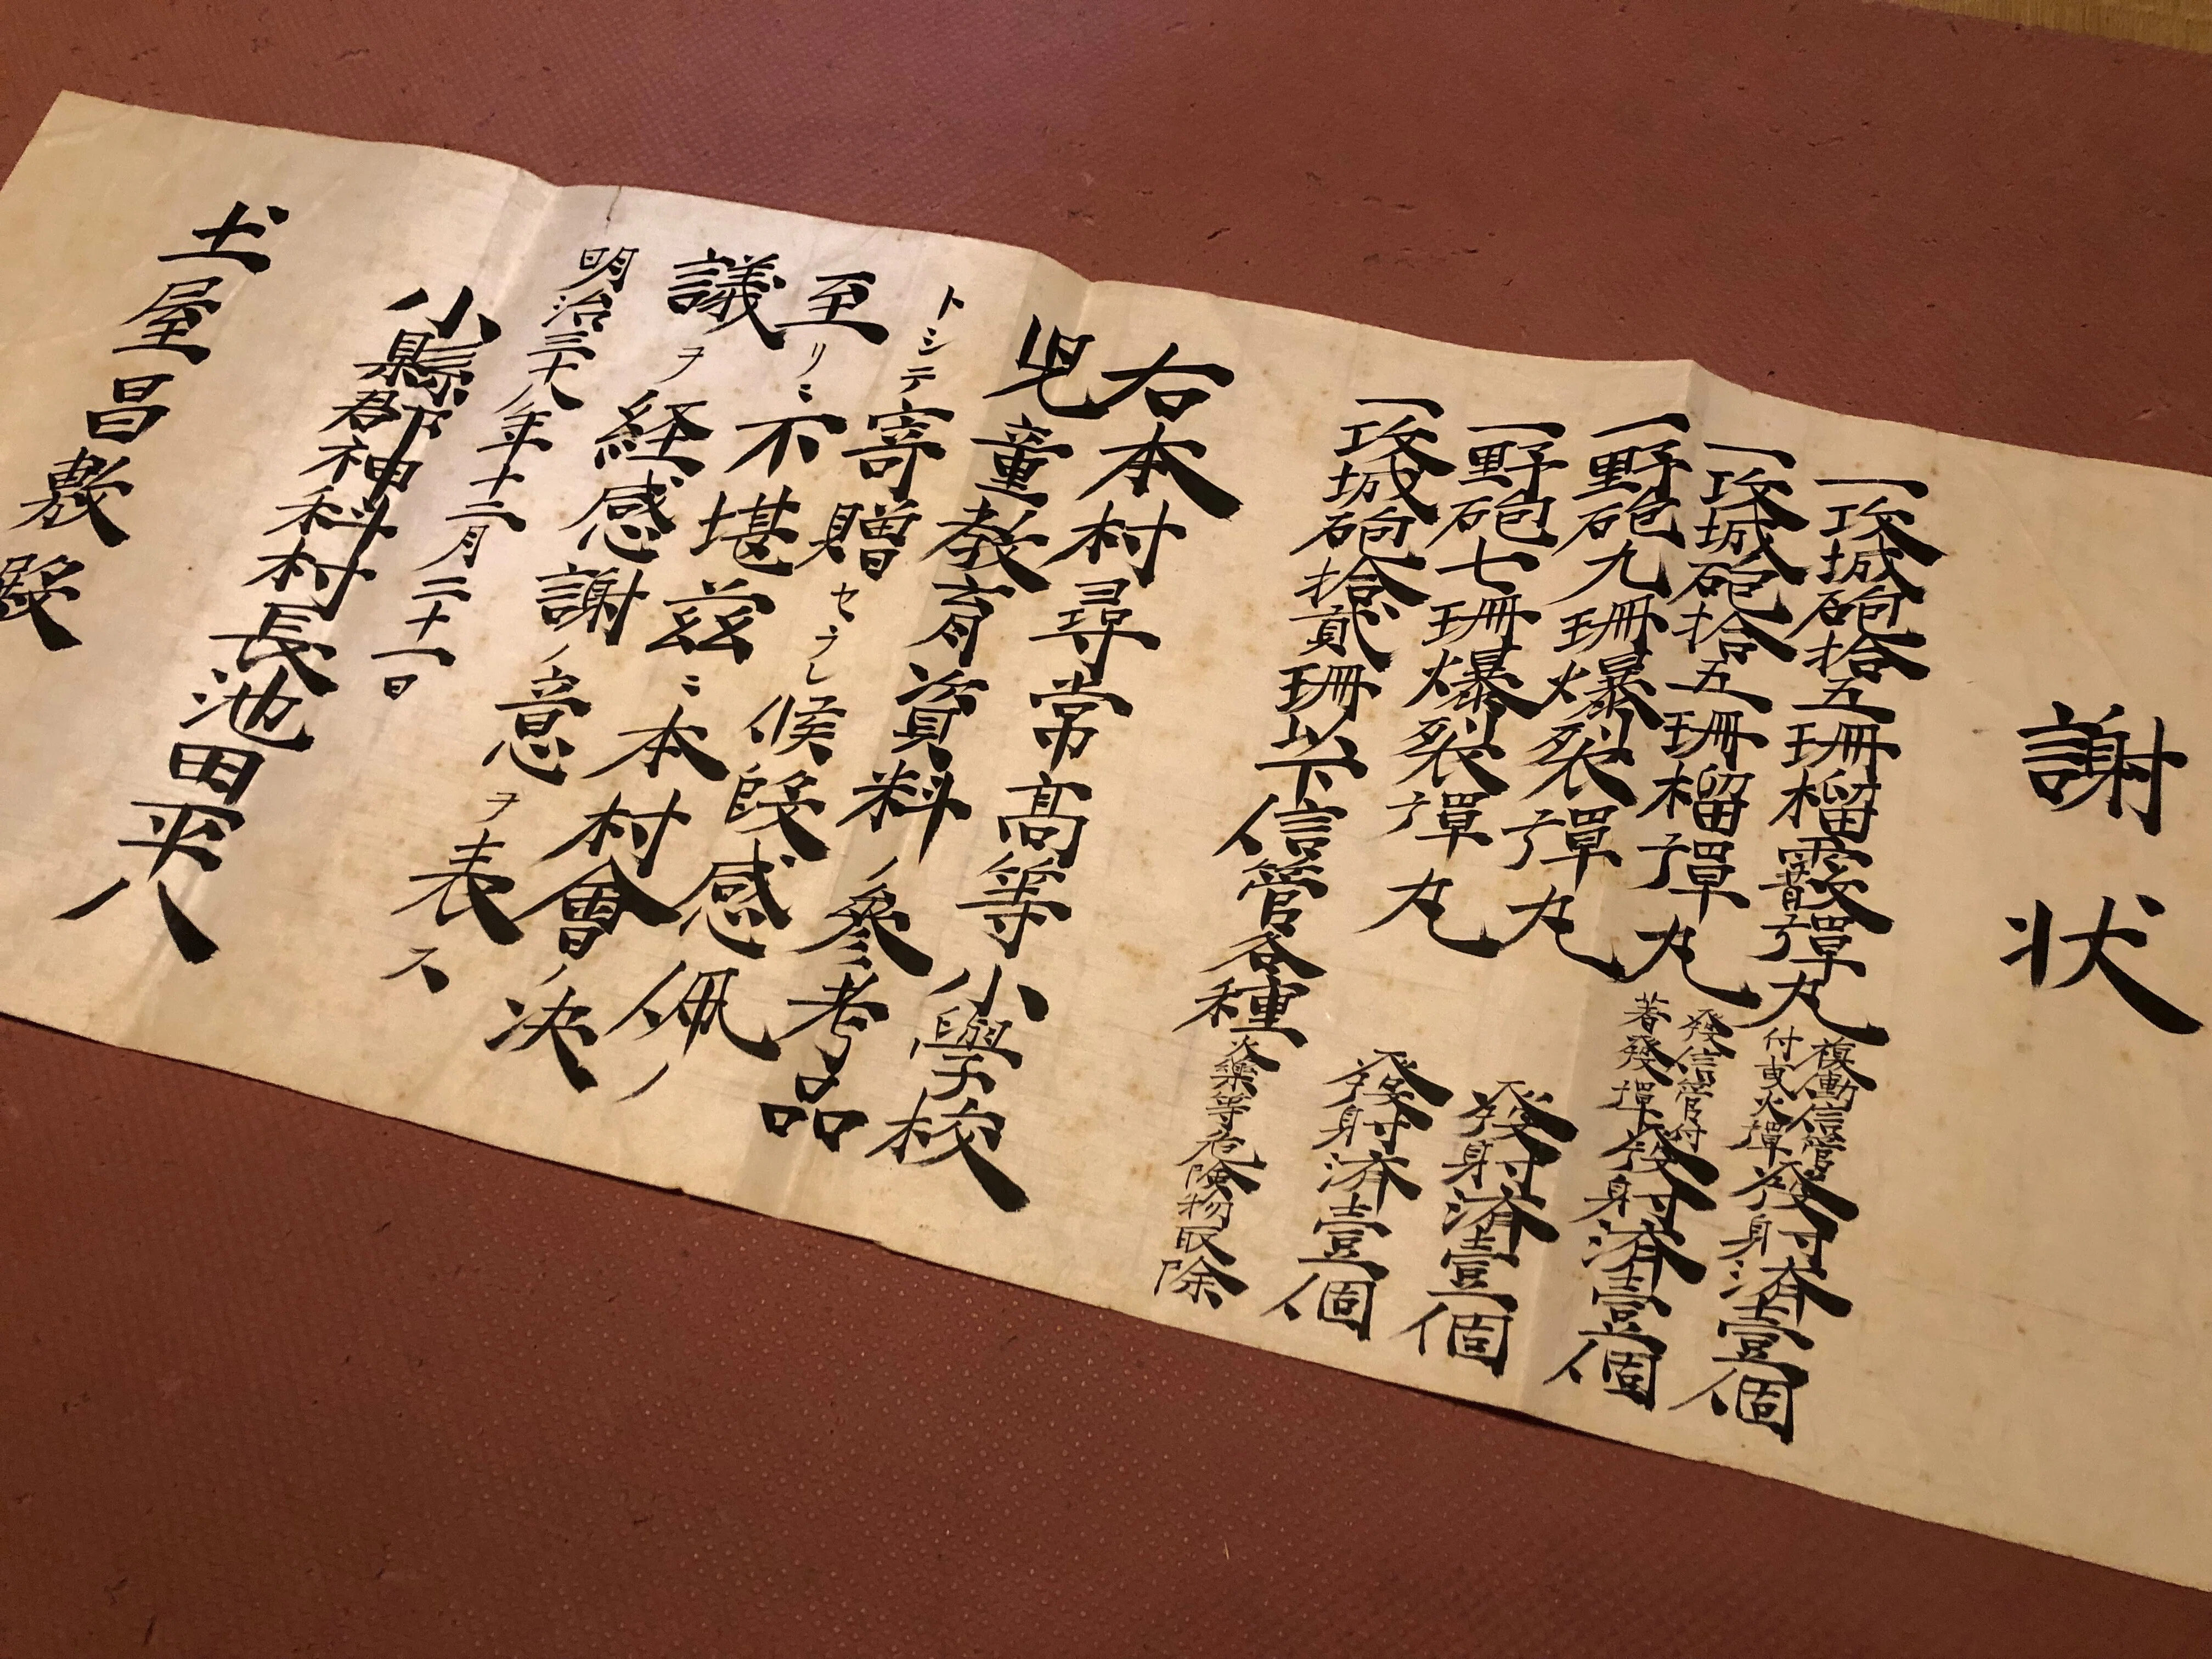 謝状
一攻城砲拾五珊榴霰彈丸 複動信管付曳火彈 發射済壹個
一攻城砲拾五珊榴彈丸 發信管付着發彈 發射済壹個
一野砲九珊爆裂彈丸 發射済壹個
一野砲七珊爆裂彈丸 發射済壹個
一攻城砲拾貳珊以下信管各種 火藥等危険物取除
右本村尋常高等小學校
児童教育資料ノ參考品
トシテ寄贈セラレ候段感佩ノ
至リニ不堪茲ニ本村會ノ决
議ヲ経感謝ノ意ヲ表ス
明治三十八年十二月二十一日
小縣郡神科村長池田平八
土屋昌敷殿